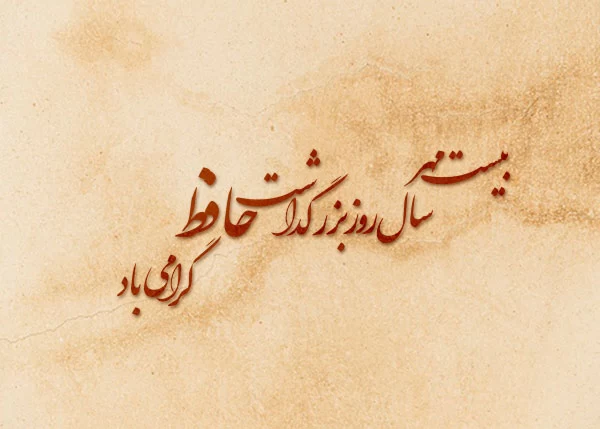 بیست مهر
سال روز بزرگداشت حافظ
گرامی باد